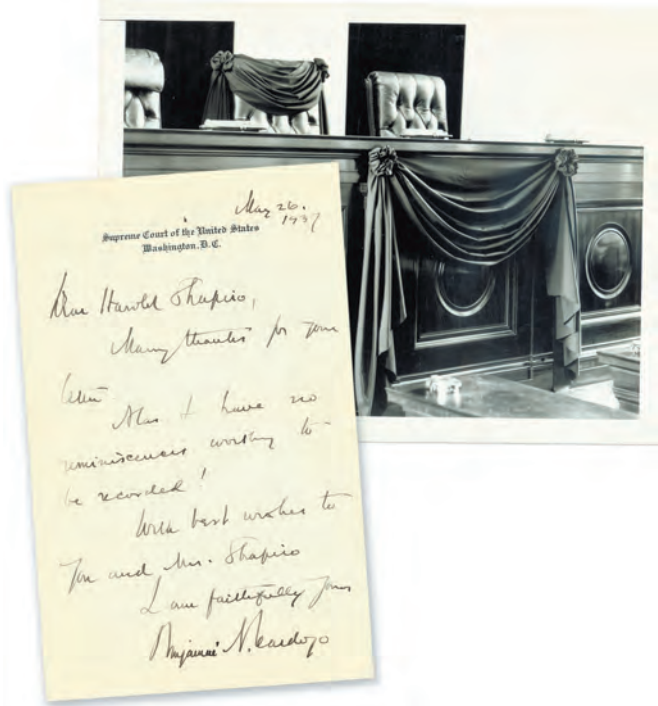 May 26.
1937
Supreme Court of the United States
Washington, D.C.
Dear Harold Shapiro,
Many thanks for your
letter
Alas I have no
reminiscences worthy to
be recorded!
With best wishes to
you and Mrs. Shapiro
I am faithfully yours
Benjamin N. Cardozo